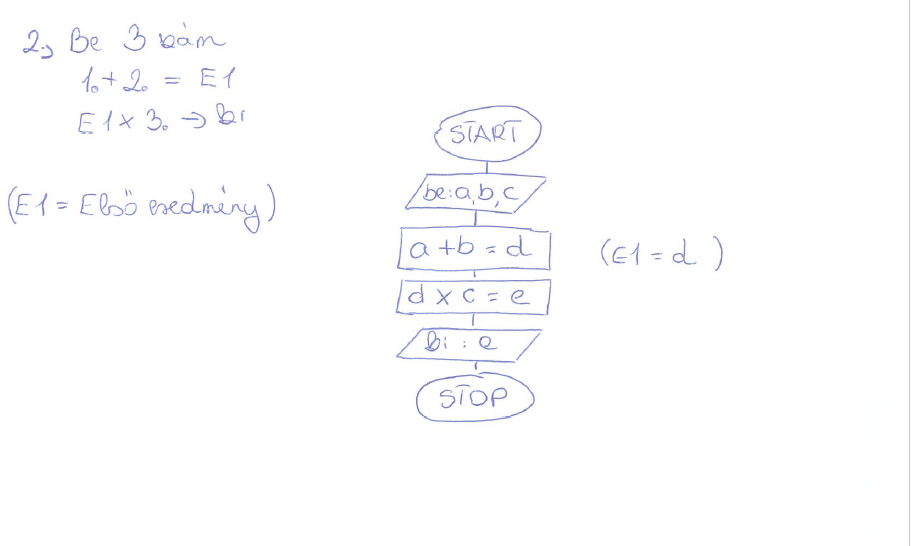 2, Be 3 szám
1.+2. = E1
E1 x 3. → ki
(E1 = Első eredmény)
START
be: a, b, c
a + b = d
(E1 = d )
d x c = e
ki : e
STOP